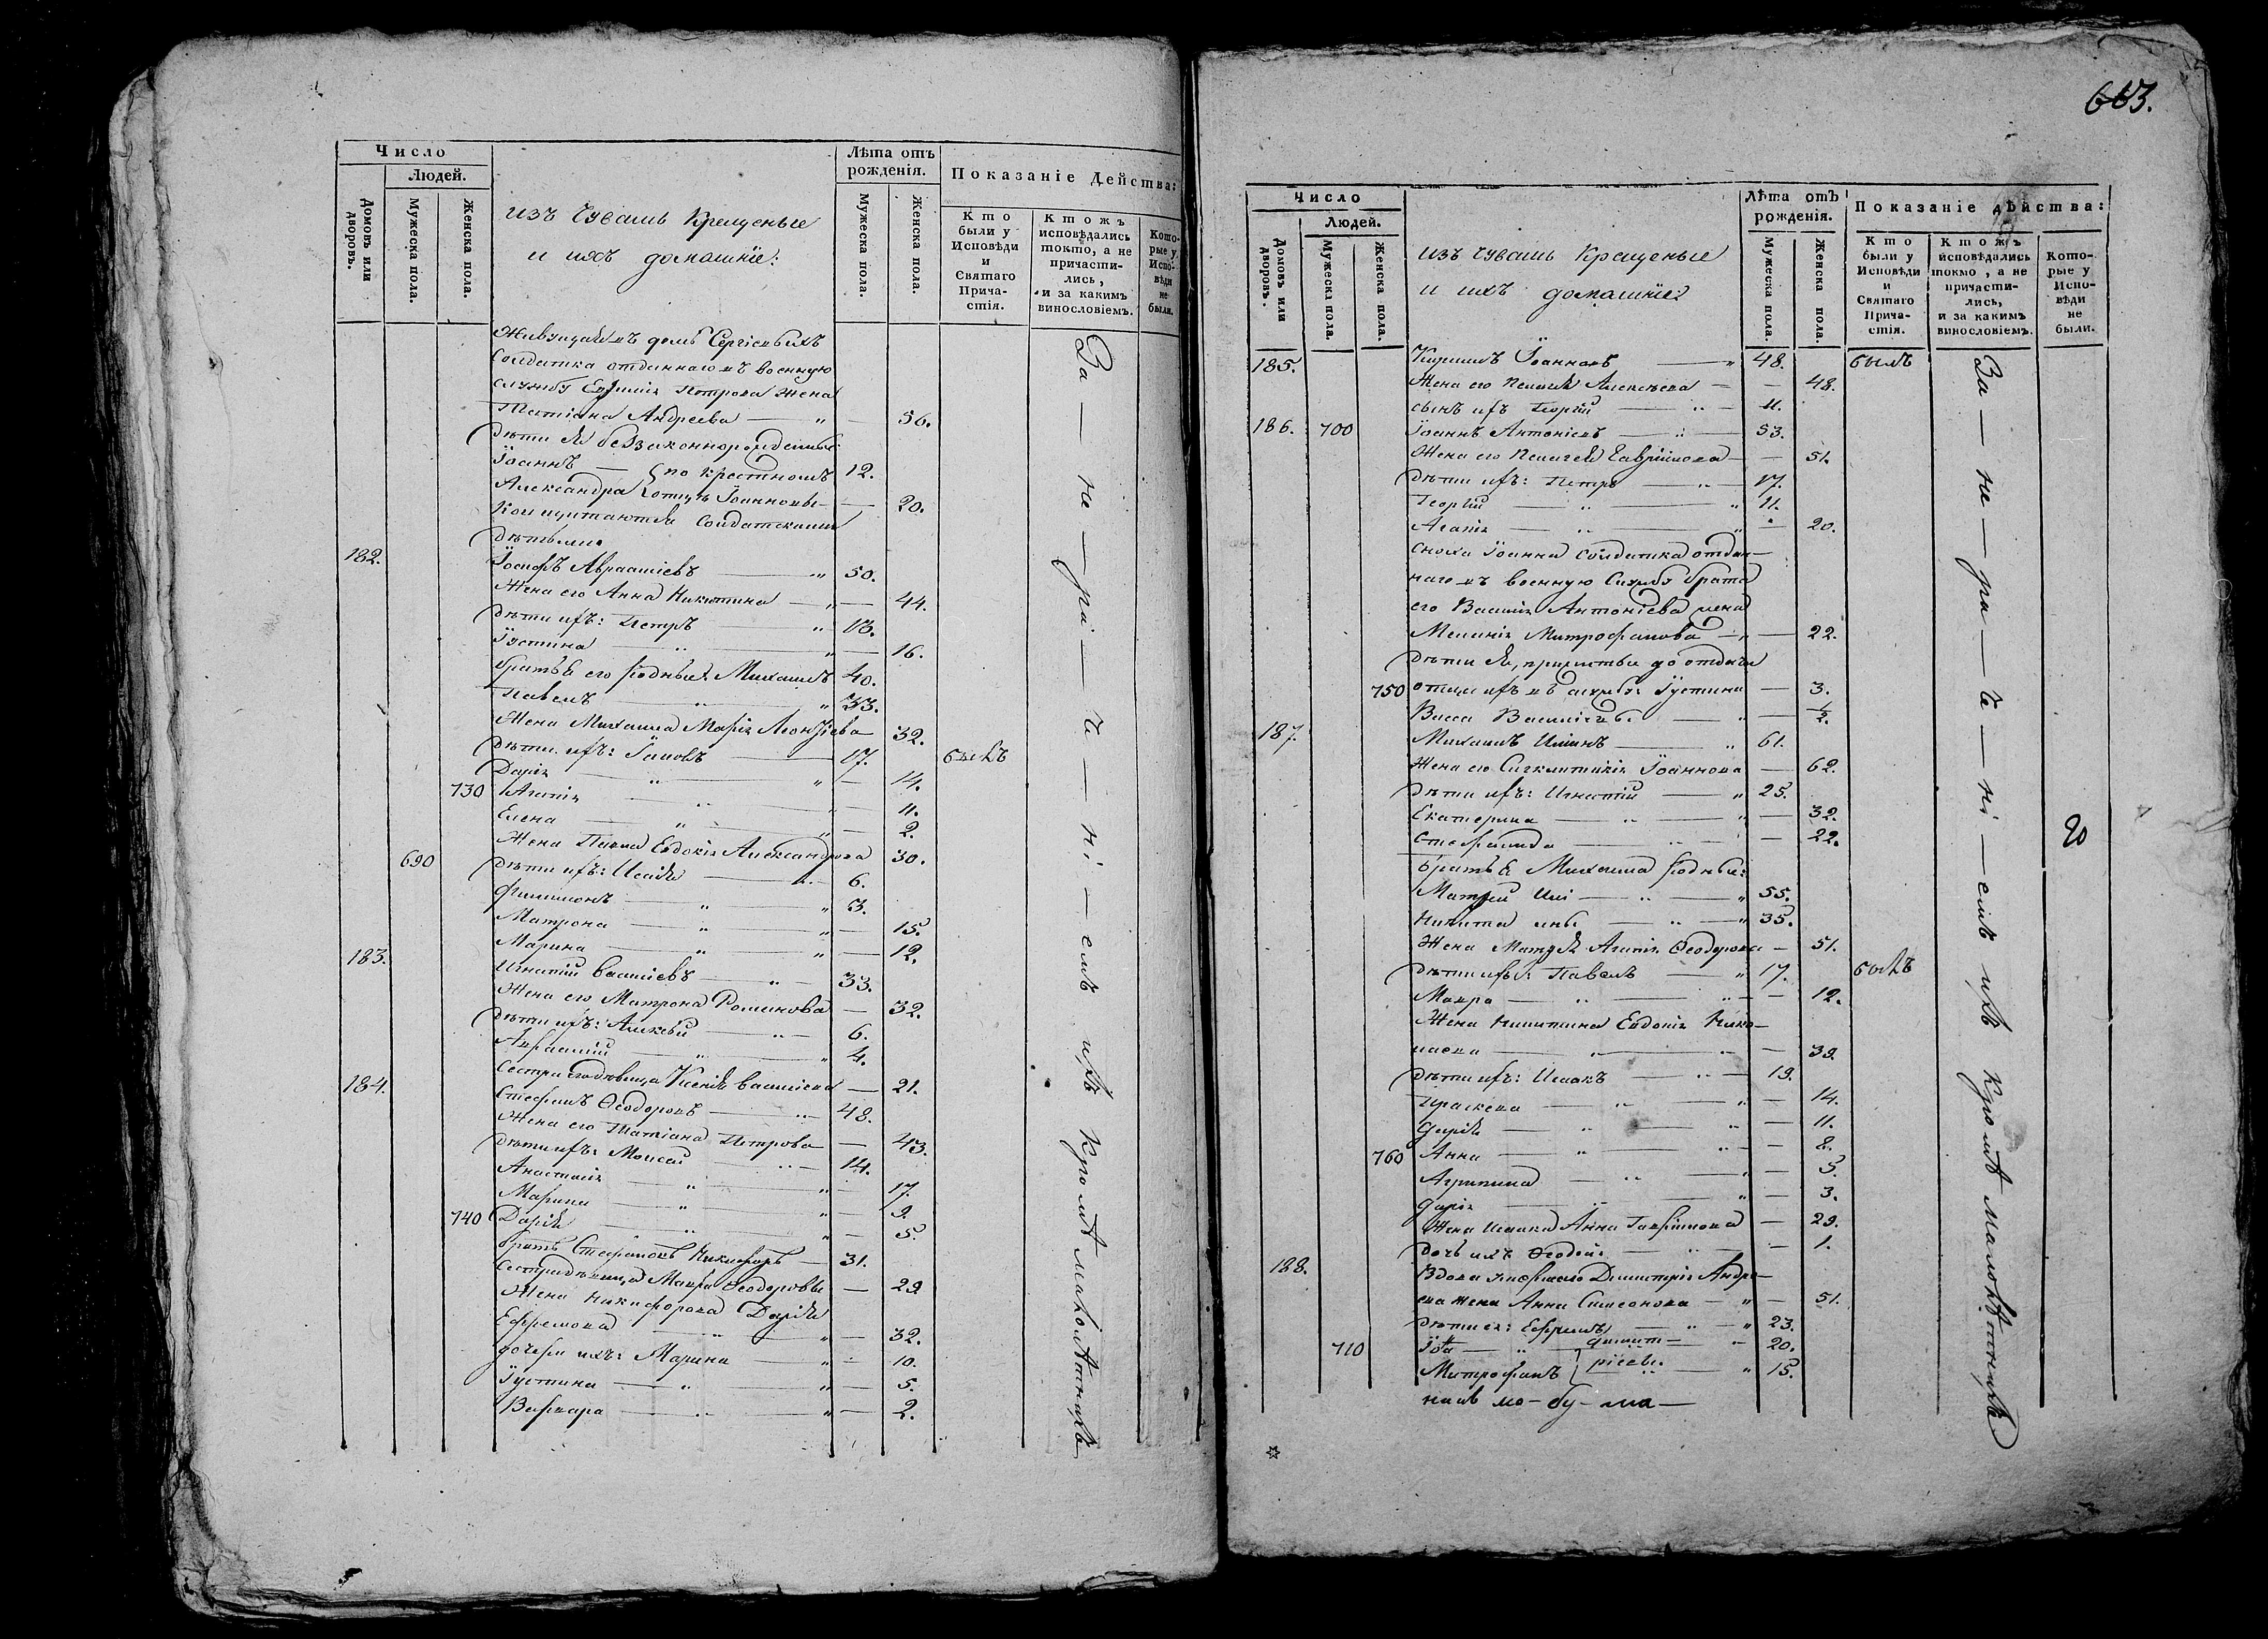 Число
Людей.
Домовъ или дворовъ.
Мужеска пола.
Женска пола.
изъ Чувашъ Крещеные
и ихъ домашніе:
Лѣта отъ
рожденія.
Мужеска пола.
Женска пола.
Показаніе Действа:
Кто
были у
Исповѣди
и
Святаго
Прича-
стія.
Ктожъ
исповѣдались
токмо, а не
причасти-
лись,
и за какимъ
винословіемъ.
Кото-
рые у
Испо-
вѣди
не
были.
Живущая въ домѣ Сергіевыхъ
Солдатка отданнаго въ военную
службу Петрова Жена
Татіана Андреева — 56.
Дѣти ея беззаконнорожденные
Іоаннъ — по крестному 12.
Александра отцу Іоанновы — 20.
Кои щитаются Солдатскими
дѣтьми.
182. Іосифъ Авраамiевъ — 50.
Жена его Анна Никитина — 44.
Дѣти ихъ: Петръ — 13.
Іустина — 16.
братья его родные Михаилъ 40.
Павелъ — 33.
Жена Михаила Марія Леонтіева 32.
Дѣти ихъ: Іаковъ — 17. былъ
Дарія — 14.
730 Агапія — 11.
Елена — 2.
Жена Павла Евдокія Александрова 30.
690 Дѣти ихъ: Исаія — 6.
Филимонъ — 3.
Матрона — 15.
Марина — 12.
183. Игнатій Василіевъ — 33.
Жена его Матрона Романова — 32.
Дѣти ихъ: Алексѣй — 6.
4.
Сестра его дѣвица Ксенія Василіева — 21.
184. Стефанъ Ѳеодоровъ — 48.
Жена его Татіана Петрова — 43.
Дѣти ихъ: Моисей — 14.
Анастасія — 17.
Марина — 9.
740 Дарія — 5.
братъ Стефановъ Никифоръ — 31.
Сестра дѣвица Мавра Ѳеодоровы — 29
Жена Никифорова Дарія
Ефремова — 32.
дочери ихъ: Марина — 10.
Іустина — 5.
Варвара — 2.
За — не — ра — че — ні — емъ ихъ Кромѣ малолѣтнихъ
663.
Число
Людей.
Домовъ или дворовъ.
Мужеска пола.
Женска пола.
изъ Чувашъ Крещеные
и ихъ домашніе:
Лѣта отъ
рожденія.
Мужеска пола.
Женска пола.
Показаніе дѣйства:
Кто
были у
Исповѣди
и
Святаго
Прича-
стія.
Ктожъ
исповѣдались
токмо, а не
причасти-
лись,
и за какимъ
винословіемъ.
Кото-
рые у
Испо-
вѣди
не
были.
185. Кириллъ Іоанновъ — 48. былъ
Жена его Пелагія Алексѣева — 48.
сынъ ихъ Георгій — 11.
186. 700 Іоаннъ Антоніевъ — 53.
Жена его Пелагея Гавріилова — 51.
Дѣти ихъ: Петръ — 17.
Георгій — 11.
Агапія — 20.
сноха Іоанна Солдатка отдан-
наго въ военную Службу брата
его Василія Антоніева жена
Меланія Митрофанова — 22.
Дѣти ея, прижитыя до отдачи
750 отца ихъ въ службу: Іустина — 3.
Васса Василіевы — ½.
187. Михаилъ Ильинъ — 61.
Жена его Сигклитикія Іоаннова — 62.
Дѣти ихъ: Игнатій — 25.
Екатерина — 32.
Стефанида — 22.
братья Михаила родные:
Матѳей Иль — 55.
Никита ины — 35.
Жена Матѳея Агапія Ѳеодорова — 51.
Дѣти ихъ: Павелъ — 17. былъ
Мавра — 12.
Жена Никитина Евдокія Нико-
лаева — 39
Дѣти ихъ: Исаакъ — 19.
Праскева — 14.
Дарія — 11.
760 Анна — 8.
Агрипина — 5.
Дарія — 3.
Жена Исаака Анна Гавріилова — 29.
Дочь ихъ Ѳеодосія — 1.
188. Вдова умершаго Димитрія Андре-
ева жена Анна Симеонова — 51.
Дѣти ея: Ефремъ — 23.
710 Іовъ — димит- 20.
Митрофанъ — ріевы. 15.
намъ мо- бу- ма-
За — не — ра — че — ні — емъ ихъ Кромѣ малолѣтнихъ
20